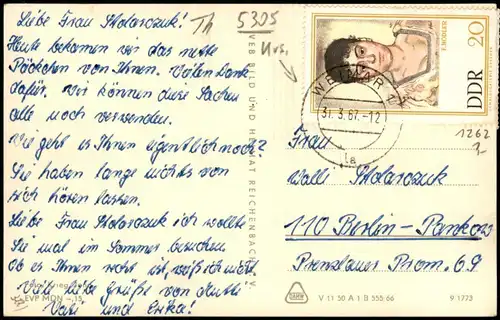 Liebe Frau Stolarczuk!
Heute bekamen wir das nette
Päckchen von Ihnen. Vielen Dank
dafür. Wir können diese Sachen
alle noch verwenden.
Wie geht es Ihnen eigentlich noch?
Sie haben lange nichts von
sich hören lassen.
Liebe Frau Stolarczuk ich wollte
Sie mal im Sommer besuchen
ob es Ihnen recht ist, weiß ich nicht.
Viele liebe Grüße von Mutti
Vati und Erika!
EVP MDN -,15
Th 5305
VERLAG BILD UND HEIMAT REICHENBACH I. V.
F. HODLER
DDR 20
WEIMAR 1
31.3.67.-12
1a
1262
Frau
Walli Stolarczuk
110 Berlin-Pankow
Prenzlauer Prom. 69
V 11 50 A 1 B 555/66
9 1773